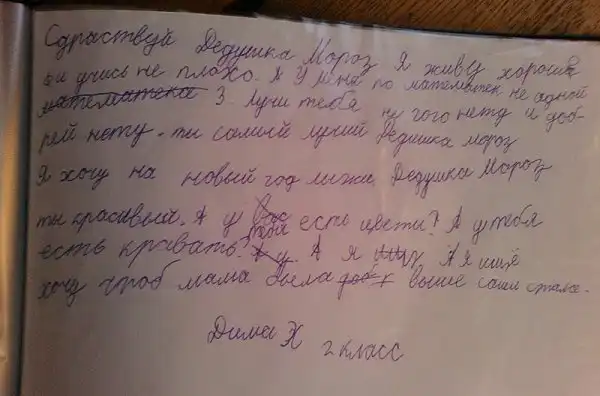 Сдраствуй Дедушка Мороз Я живу хорошо
и учись не плохо. А У меня по математек не одной
математека 3. Лучи тебя ни гого нету и доб-
рей нету. ты самый лучий Дедушка мороз
Я хочу на новый год лыжи, Дедушка Мороз
ты красивый. А у вас тебя есть цветы? А у тебя
есть кравать? А у. А я А я ишё
хочу чтоб мама была выше сама
Дима Х
2 класс